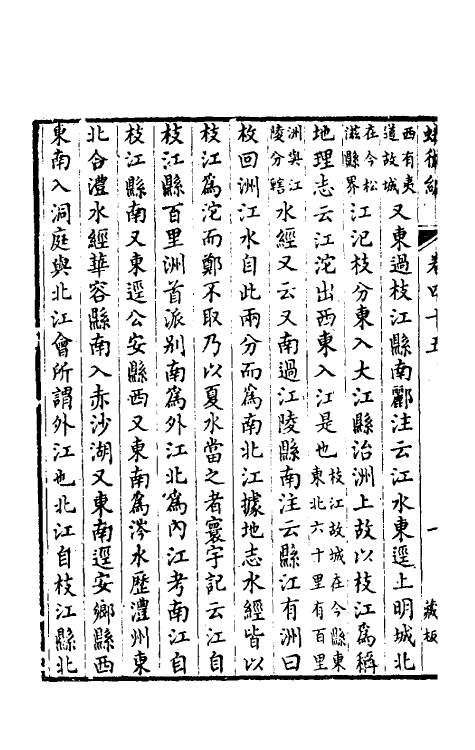 蛾術編 卷四十五 一 藏板
西有夷道故城又東過枝江縣南酈注云江水東逕上明城北
在今松滋縣界江汜枝分東入大江縣治洲上故以枝江爲稱
地理志云江沱出西東入江是也枝江故城在今縣東東北六十里有百里
洲與江陵分轄水經又云又南過江陵縣南注云縣江有洲曰
枚回洲江水自此兩分而爲南北江據地志水經皆以
枝江爲沱而鄭不取乃以夏水當之者寰宇記云江自
枝江縣百里洲首派別南爲外江北爲內江考南江自
枝江縣南又東逕公安縣西又東南爲涔水歷澧州東
北合澧水經華容縣南入赤沙湖又東南逕安鄉縣西
東南入洞庭與北江會所謂外江也北江自枝江縣北